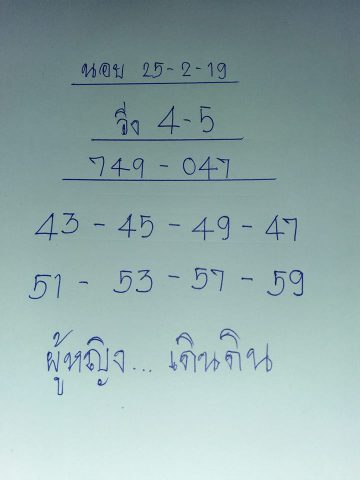 นอย 25-2-19
วิ่ง 4-5
749-047
43-45-49-47
51-53-57-59
ผู้หญิง... เดินดิน